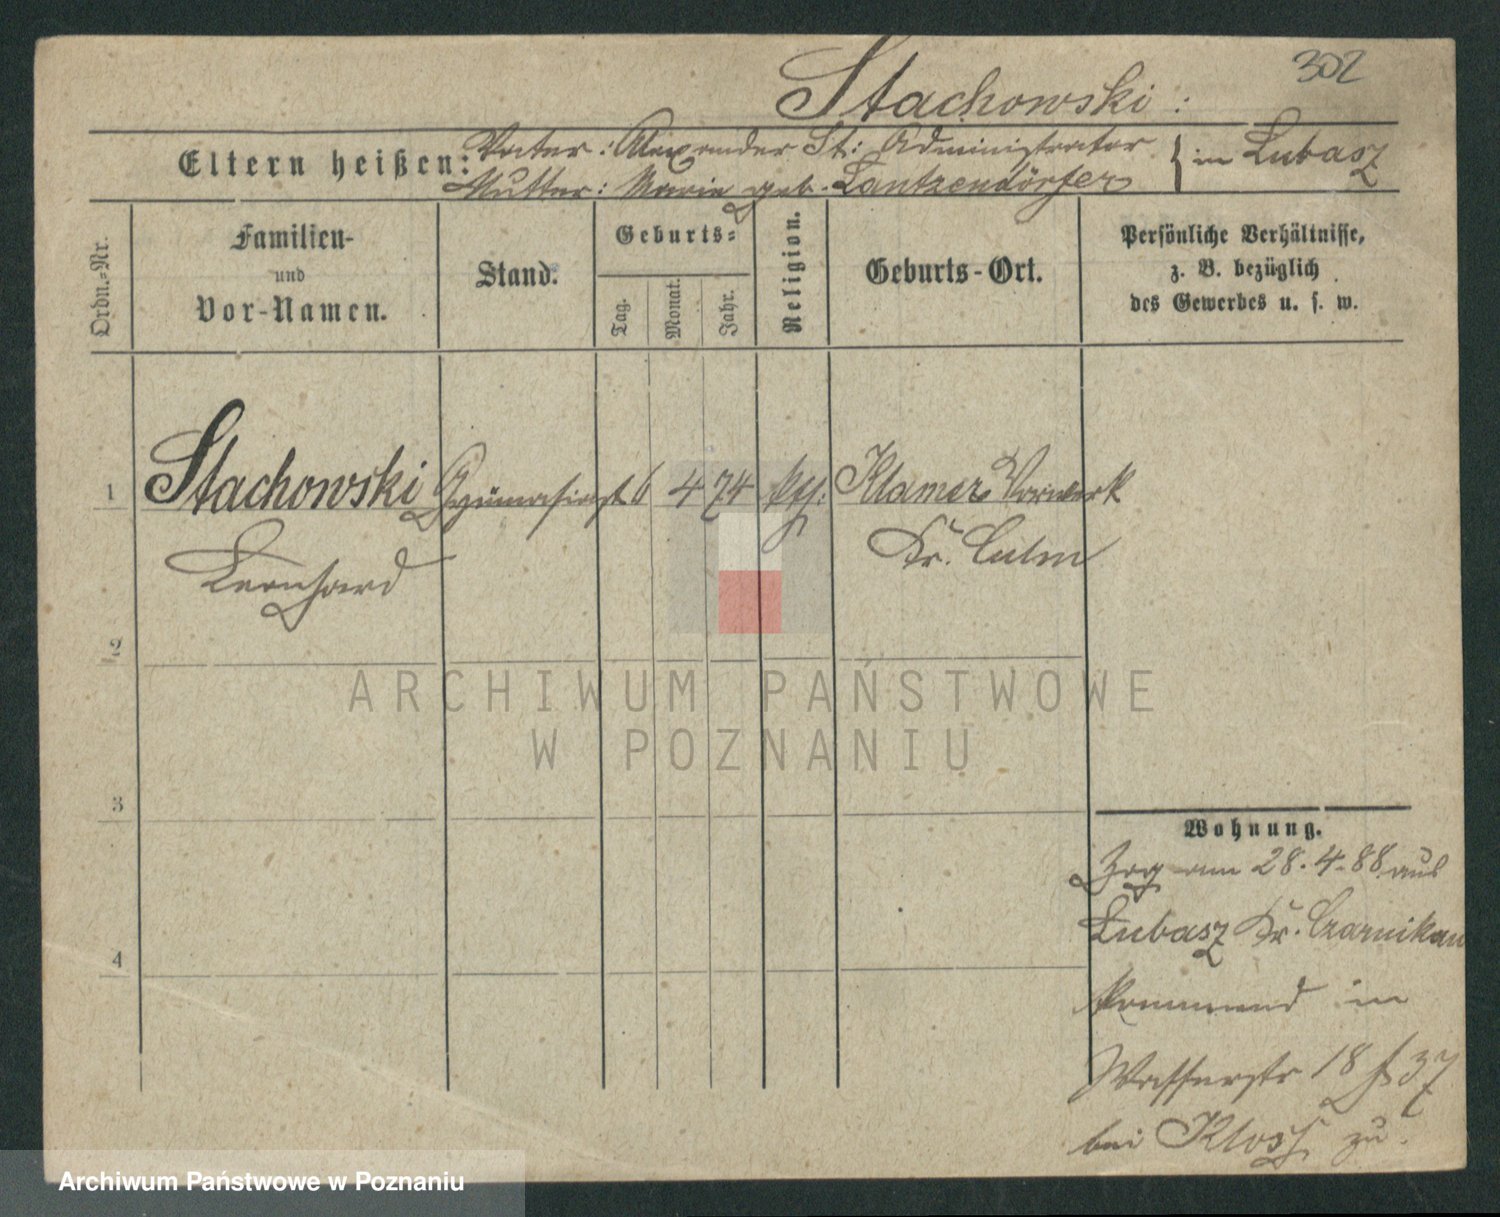 302
Stachowski:
Eltern heißen: Vater: Alexander St: Administrator } in Lubasz
Mutter: Maria geb. Lantzendörfer
Ordn.-Nr.
Familien-
und
Vor-Namen.
Stand.
Geburts-
Tag.
Monat.
Jahr.
Religion.
Geburts-Ort.
Persönliche Verhältnisse,
z. B. bezüglich
des Gewerbes u. s. w.
1 Stachowski Gymnasiast 6 4 74 kth: Klamer Vorwerk
Leonhard Kr. Culm
2
3
4
Wohnung.
Zog am 28.4.88 aus
Lubasz Kr. Czarnikau
kommend in
Wasserstr 18 37
bei Kloss zu.
ARCHIWUM PAŃSTWOWE
W POZNANIU
Archiwum Państwowe w Poznaniu